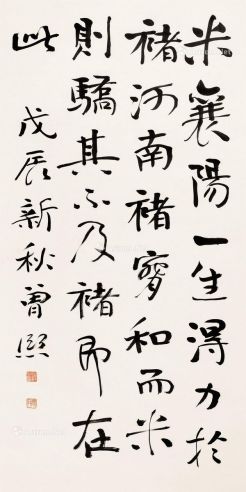 米襄陽一生得力於
褚河南褚窅和而米
則驕其不及褚即在
此
戊辰新秋曾熙